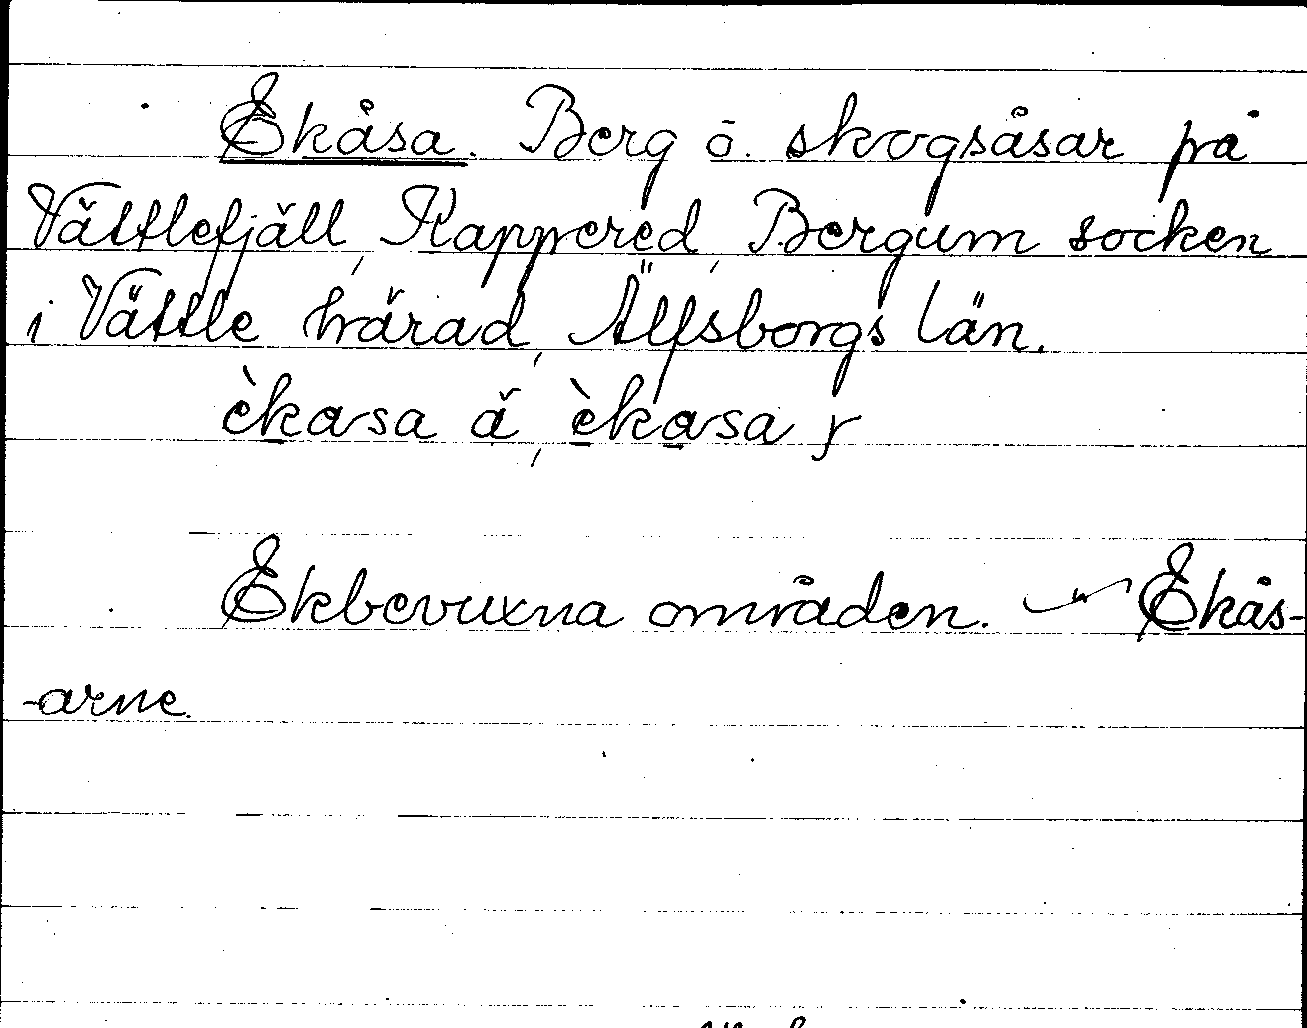 Ekåsa. Berg o. skogsåsar på
Vättlefjäll, Kappered, Bergum socken
i Vättle härad, Älfsborgs län.
èkasa ä, èkasa r
Ekbevuxna områden. Ekås-
-arne.